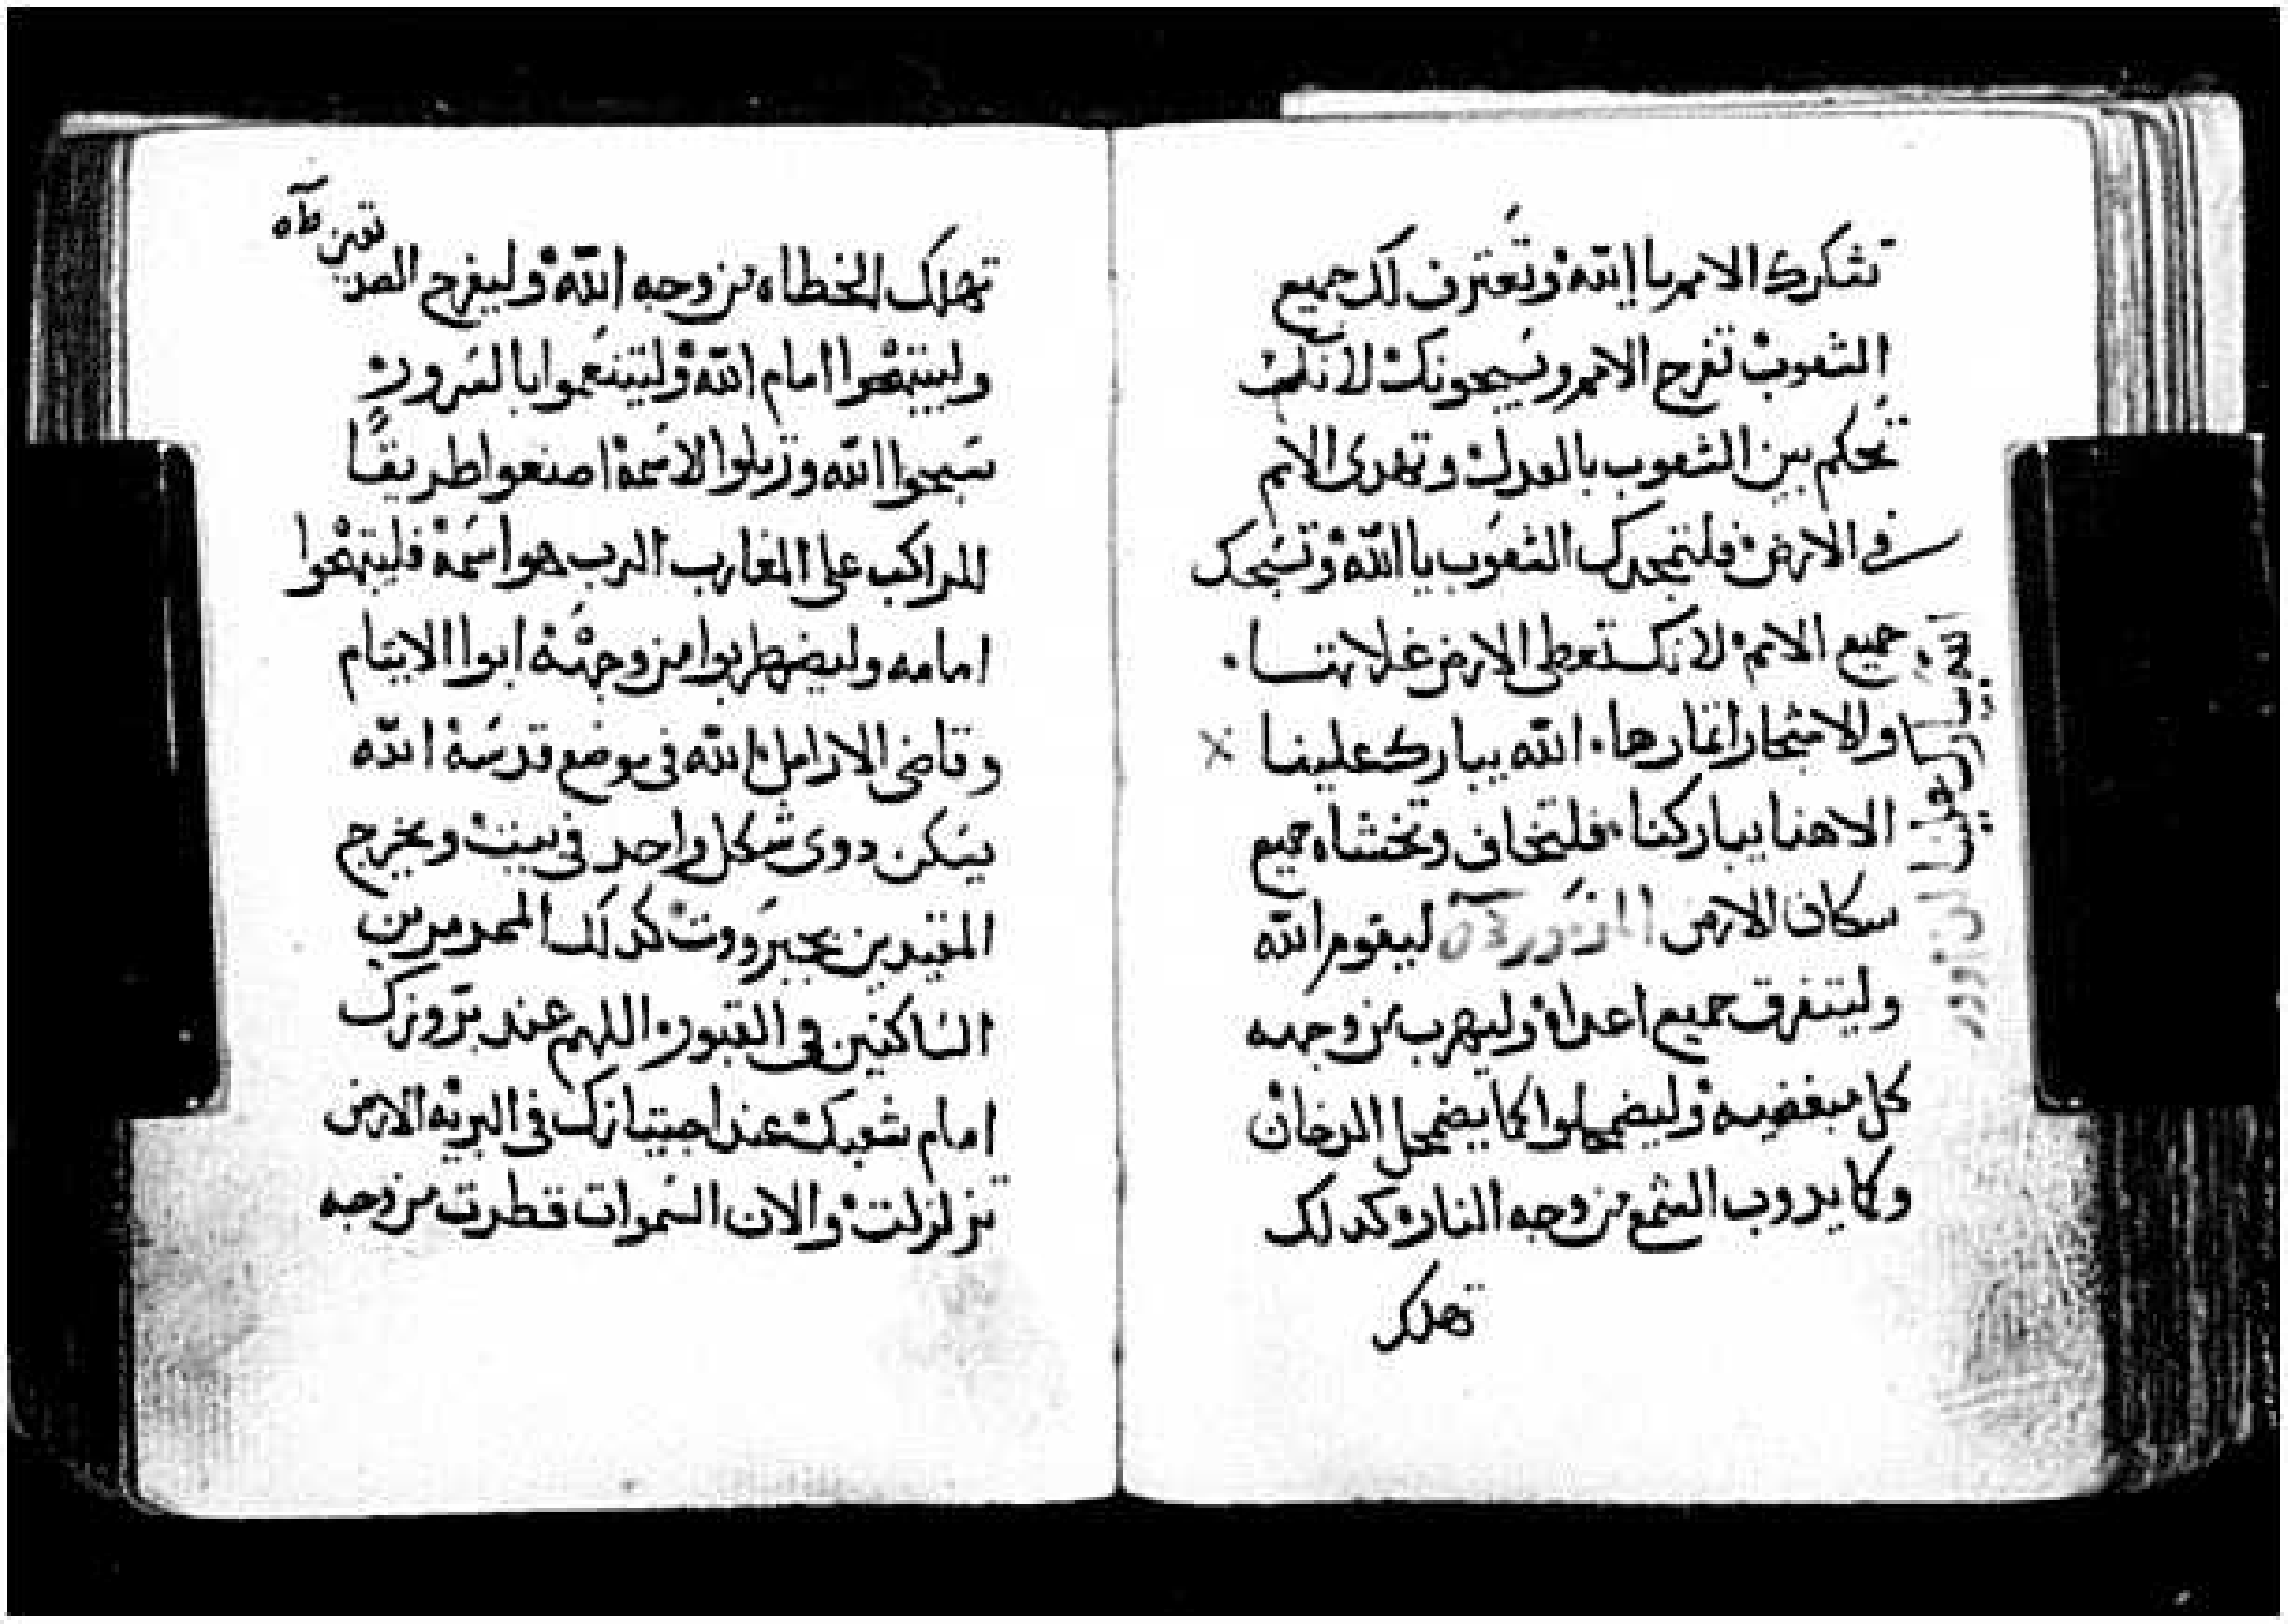 تشكرك الامم يا الله وتعترف لك جميع
الشعوب تفرح الامم ويسبحونك لانك
تحكم بين الشعوب بالعدل وتهدى الامم
فى الارض فلتمجدك الشعوب يا الله وتسبحك
جميع الامم لانك تعطى الارض غلاتها
والاشجار اثمارها الله يبارك علينا
الاهنا يباركنا فلتخاف وتخشاه جميع
سكان الارض المزمور ليقوم الله
وليتفرق جميع اعداه وليهرب من وجهه
كل مبغضيه وليضمحلوا كما يضمحل الدخان
وكما يدوب الشمع من وجه النار كدلك
تهلك
الله يبارك علينا
تهلك الخطاه من وجه الله وليفرح الصديقين
وليبتهجوا امام الله وليتنعموا بالسرور
سبحوا الله ورتلوا لاسمه اصنعوا طريقًا
للراكب على المغارب الرب هو اسمه فليبتهجوا
امامه وليضطربوا من وجهه ابوا الايتام
وقاضى الارامل الله فى موضع قدسه الله
يسكن دوى شكل واحد فى بيت ويخرج
المقيدين بجبروت كدلك المحرمرين
الساكنين فى القبور اللهم عند بروزك
امام شعبك عند اجتيازك فى البريه الارض
تزلزلت والان السموات قطرت من وجه